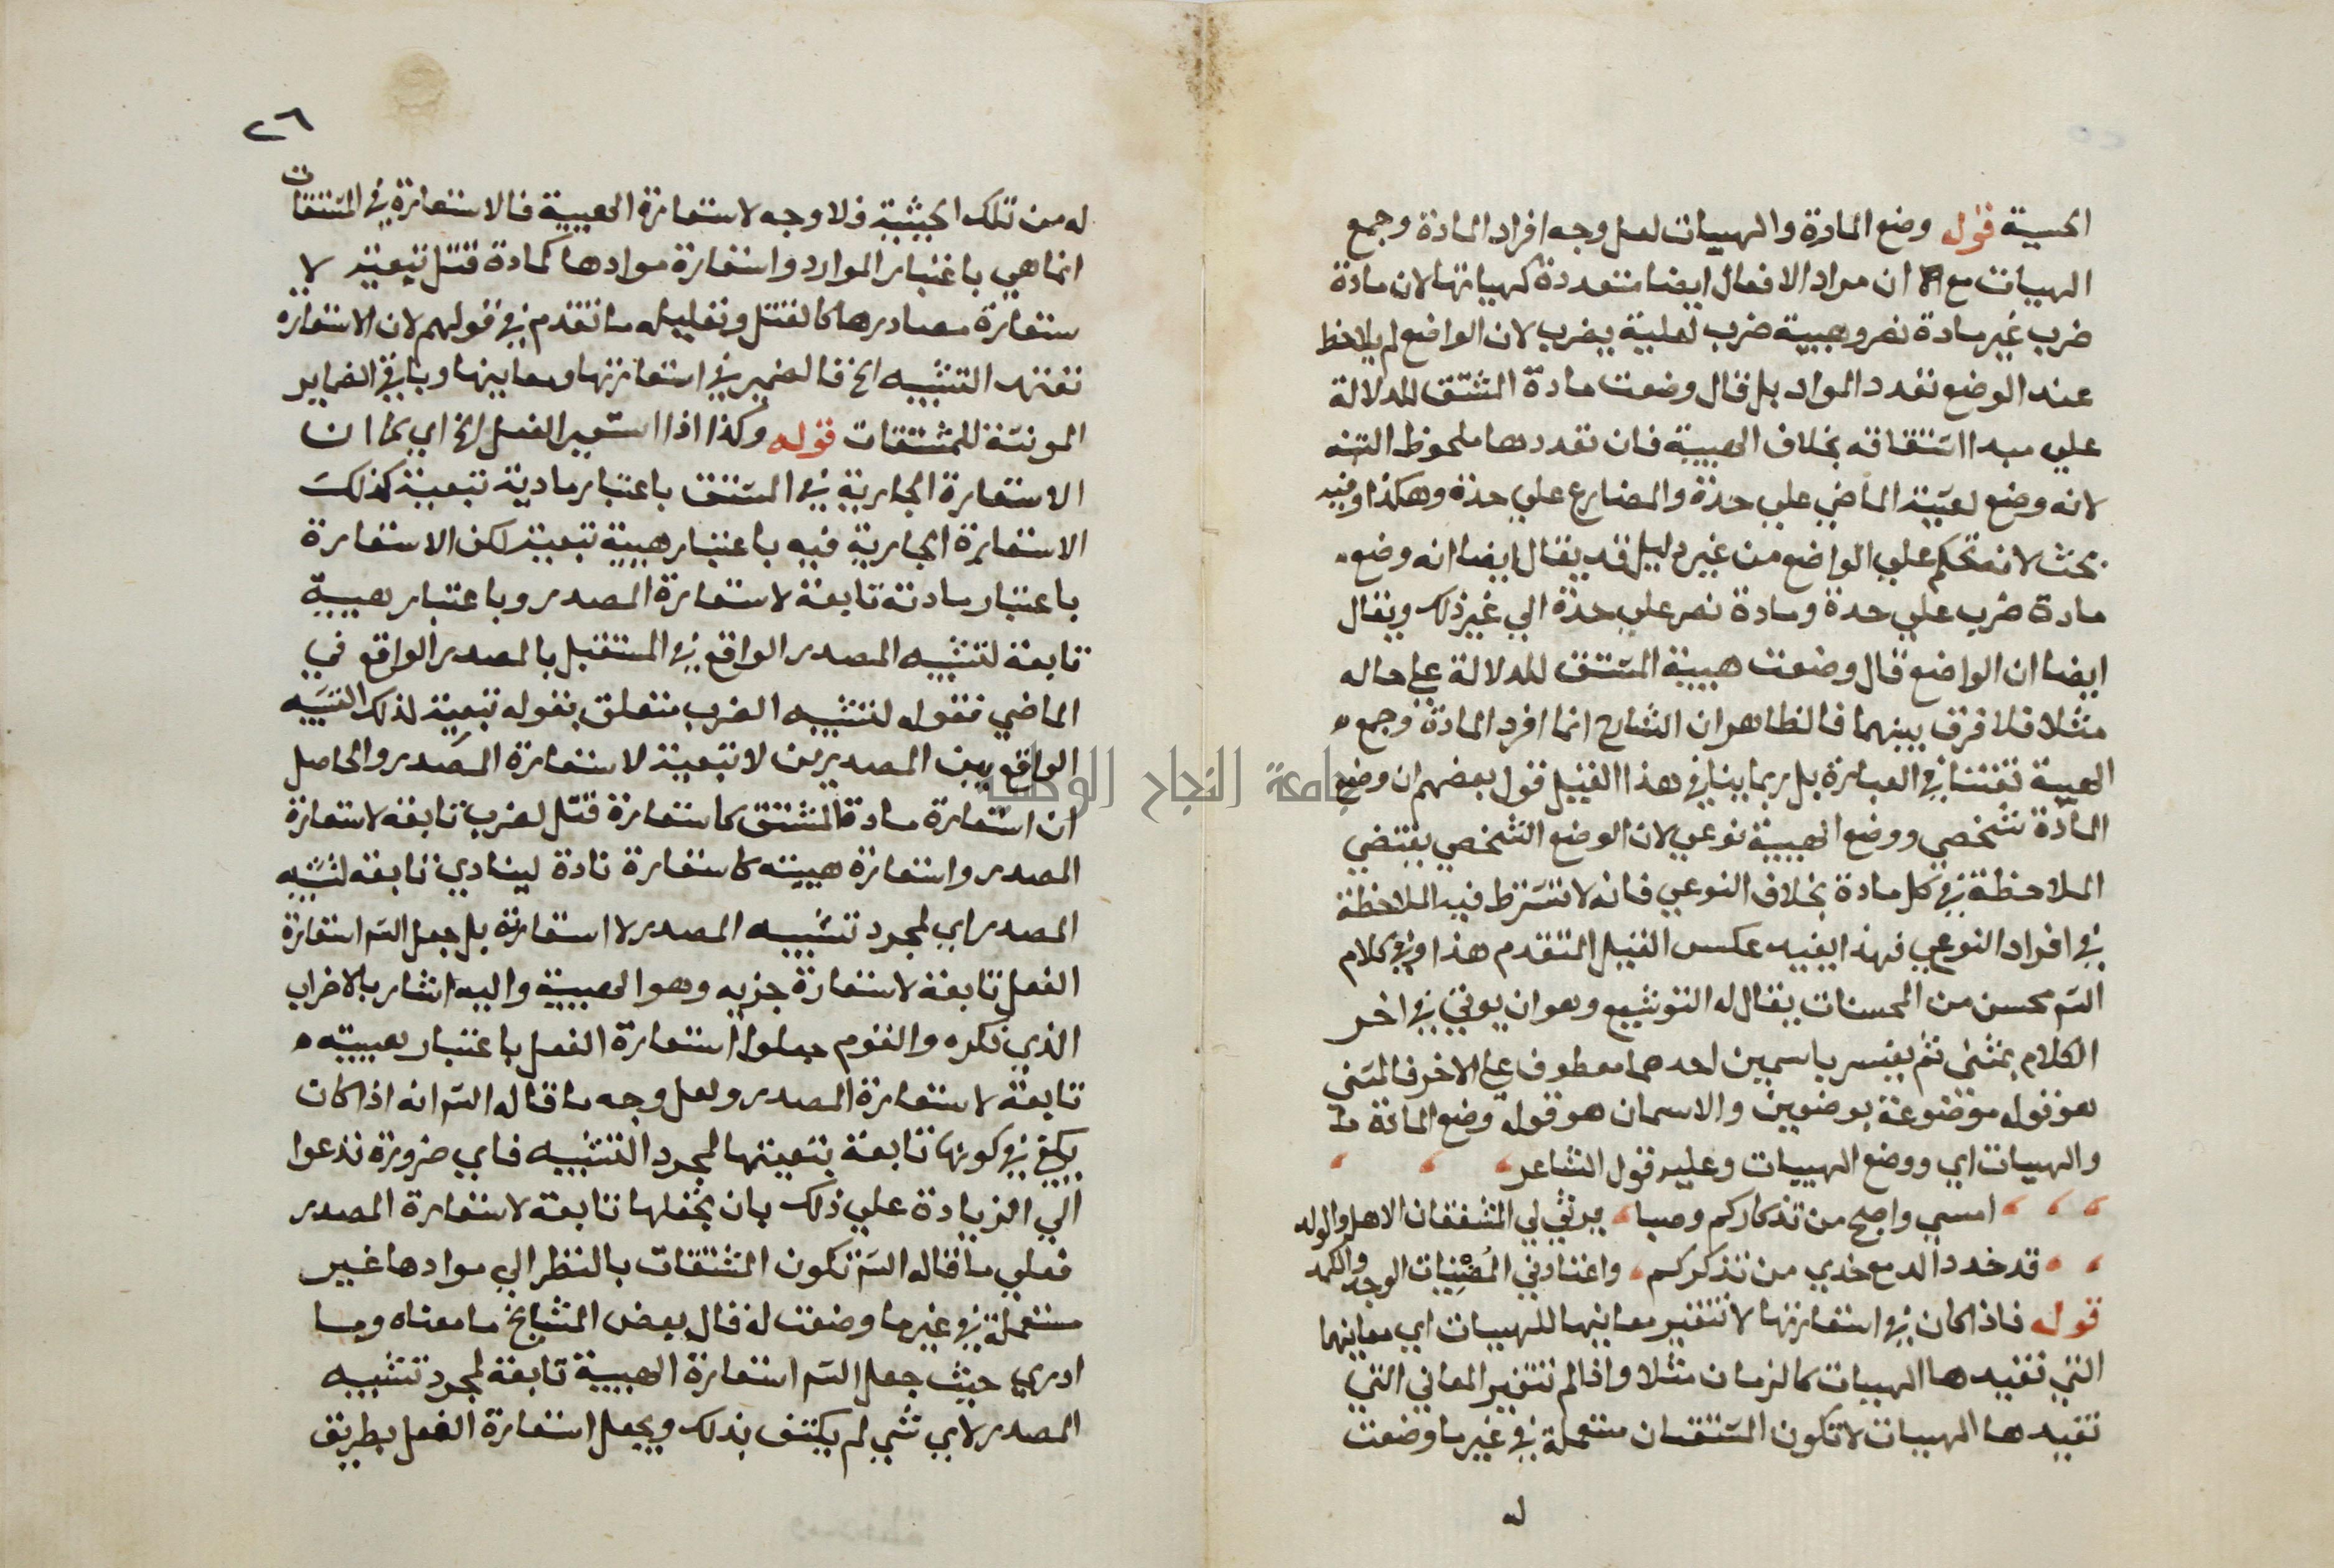 الحسية قوله وضع المادة والهييات لعل وجه افراد المادة وجمع
الهييات مع ان مواد الافعال ايضا متعددة كهياتها لان مادة
ضرب غير مادة نصر وهيية ضرب لعلية يضرب لان الواضع لم يلاحظ
عند الوضع تعدد المواد بل قال وضعت مادة المشتق للدلالة
علي مبدا اشتقاقه بخلاف الهيية فان تعددها ملحوظ
لانه وضع لهيية الماضي علي حدة والمضارع علي حدة وهكذا وفيه
بحث لانه تحكم علي الواضع من غير دليل قد يقال ايضا انه وضع
مادة ضرب علي حدة ومادة نصر علي حدة الي غير ذلك ويقال
ايضا ان الواضع قال وضعت هيية المشتق للدلالة علي حاله
مثلا فلا فرق بينهما فالظاهر ان الشارح انما افرد المادة وجمع
الهيية تفننا في العبارة بل ربما ينافي هذا القيل قول بعضهم ان وضع
المادة شخصي ووضع الهيية نوعي لان الوضع الشخصي يقتضي
الملاحظة في كل مادة بخلاف النوعي فانه لا تشترط فيه الملاحظة
في افراد النوعي فهذا يفيد عكس القيل المتقدم هذا وفي كلام
الش محسن من المحسنات يقال له التوشيع وهو ان يوتي في اخر
الكلام بمثنى ثم يفسر باسمين احدهما معطوف علي الاخر فالمثني
هو قوله موضوعة بوضعين والاسمان هو قوله وضع المادة
والهييات اي ووضع الهييات وعليه قول الشاعر
امسي واصبح من تذكاركم وصبا يرثي لي المشفقان الاهل والولد
قد خدد الدمع خدي من تذكركم واعتادني المضنيات الوجد والكمد
قوله فاذا كان في استعارتها لا تتغير معانيها للهييات اي معانيها
التي تفيدها الهييات كالزمان مثلا واذا لم تتغير المعاني التي
تفيدها الهييات لا تكون المشتقات مستعملة في غير ما وضعت
له
٢٦
له من تلك الحيثية فلا وجه لاستعارة الهيية فالاستعارة في المشتقات
انما هي باعتبار المواد واستعارة موادها كمادة قتل تبعية لا
ستعارة مصادرها كالقتل وتعليله ما تقدم في قولهم لان الاستعارة
تعتمد التشبيه الخ فالضمير في استعارتها ومعانيها وباقي الضماير
المونثة للمشتقات قوله وكذا اذا استعير الفعل الخ اي كما ان
الاستعارة الجارية في المشتق باعتبار مادته تبعية كذلك
الاستعارة الجارية فيه باعتبار هيية تبعية لكن الاستعارة
باعتبار مادته تابعة لاستعارة المصدر وباعتبار هيية
تابعة لتشبيه المصدر الواقع في المستقبل بالمصدر الواقع في
الماضي فقوله لتشبيه الضرب متعلق بقوله تبعية لذلك التشبيه
الواقع بين المصدرين لا تبعية لاستعارة المصدر والحاصل
ان استعارة مادة المشتق كاستعارة قتل لضرب تابعة لاستعارة
المصدر واستعارة هييته كاستعارة نادة لينادي تابعة لتشبيه
المصدر اي لمجرد تشبيه المصدر لا استعارته بل جعل الش استعارة
الفعل تابعة لاستعارة جزيه وهو الهيية واليه اشار بالاضراب
الذي ذكره والقوم جعلوا استعارة الفعل باعتبار هييته
تابعة لاستعارة المصدر ولعل وجه ما قاله الش انه اذا كان
يكفي في كونها تابعة بتبعيتها لمجرد التشبيه فاي ضرورة تدعوا
الي الزيادة علي ذلك بان يجعلها تابعة لاستعارة المصدر
فعلي ما قاله الش تكون المشتقات بالنظر الي موادها غير
مستعملة في غير ما وضعت له قال بعض المشايخ ما معناه وما
ادري حيث جعل الش استعارة الهيية تابعة لمجرد تشبيه
المصدر لاي شي لم يكتف بذلك ويجعل استعارة الفعل بطريق
جامعة النجاح الوطنية